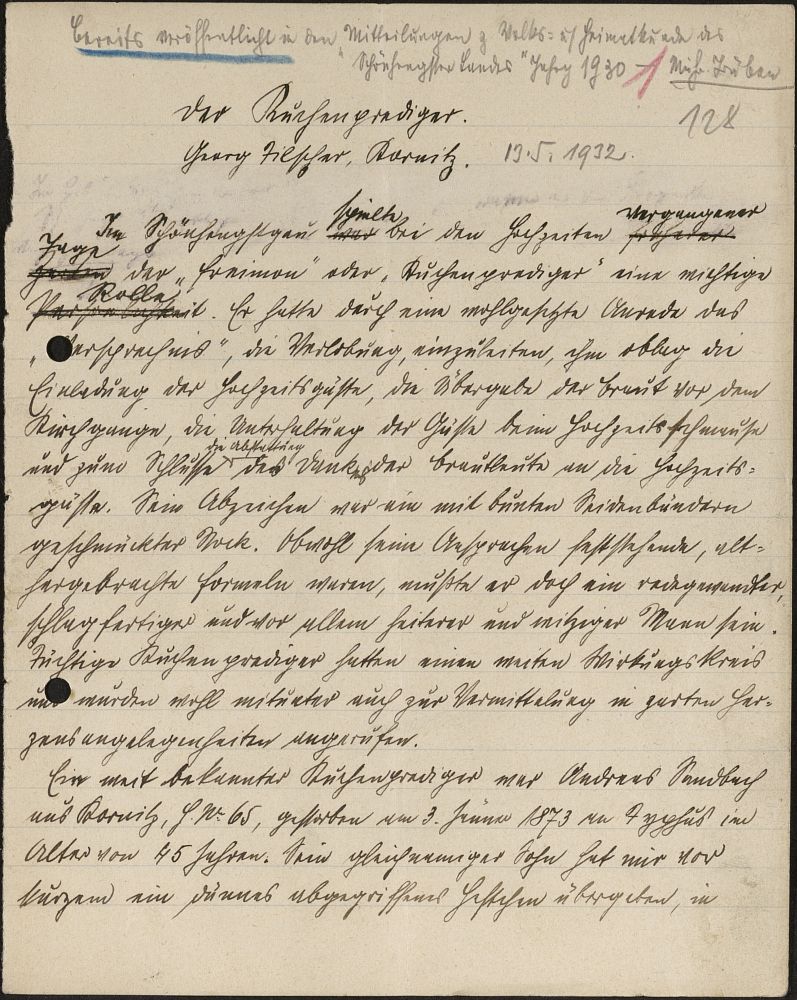 Bereits veröffentlicht in den Mitteilungen z Volks= u/ Heimatkunde des
"Schönhengster Landes" Jahrg 1930 – 1 Mähr. Trübau
Der Kuchenprediger. 128
Georg Tilscher, Kornitz. 13.5. 1932.
spielte vergangener
Im Schönhengstgau war bei den Hochzeiten früherer
Tage
Zeiten der „Freimon" oder „Kuchenprediger" eine wichtige
Rolle
Persönlichkeit. Er hatte durch eine wohlgesetzte Anrede das
„Versprechnis", die Verlobung, einzuleiten, ihm oblag die
Einladung der Hochzeitsgäste, die Übergabe der Braut vor dem
Kirchgange, die Unterhaltung der Gäste beim Hochzeitsschmause
die Abstattung
und zum Schlusse des Dankes der Brautleute an die Hochzeits=
gäste. Sein Abzeichen war ein mit bunten Seidenbändern
geschmückter Stock. Obwohl seine Ansprachen feststehende, alt=
hergebrachte Formeln waren, mußte er doch ein redegewandter,
schlagfertiger und vor allem heiterer und witziger Mann sein.
Tüchtige Kuchenprediger hatten einen weiten Wirkungskreis
und wurden wohl mitunter auch zur Vermittelung in zarten Her=
zensangelegenheiten angerufen.
Ein weit bekannter Kuchenprediger war Andreas Sandbach
aus Kornitz, H. Nr. 65, gestorben am 3. Jänner 1873 an Typhus im
Alter von 45 Jahren. Sein gleichnamiger Sohn hat mir vor
kurzem ein dünnes abgegriffenes Heftchen übergeben, in